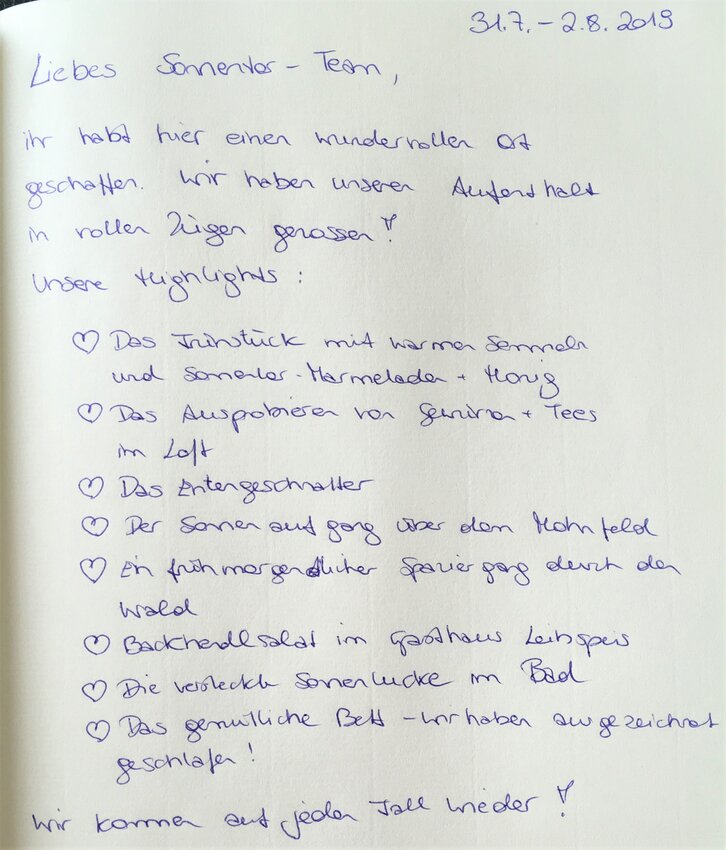 31.7. – 2.8. 2019
Liebes Sonnentor - Team,
ihr habt hier einen wundervollen Ort
geschaffen. Wir haben unseren Aufenthalt
in vollen Zügen genossen!
Unsere Highlights:
♡ Das Frühstück mit warmen Semmeln
und Sonnentor-Marmeladen + Honig
♡ Das Ausprobieren von Gewürzen + Tees
im Loft
♡ Das Entengeschnatter
♡ Der Sonnenaufgang über dem Mohnfeld
♡ Ein frühmorgendlicher Spaziergang durch den
Wald
♡ Backhendlsalat im Gasthaus Leibspeis
♡ Die versteckte Sonnenlucke im Bad
♡ Das gemütliche Bett - wir haben ausgezeichnet
geschlafen!
Wir kommen auf jeden Fall wieder!